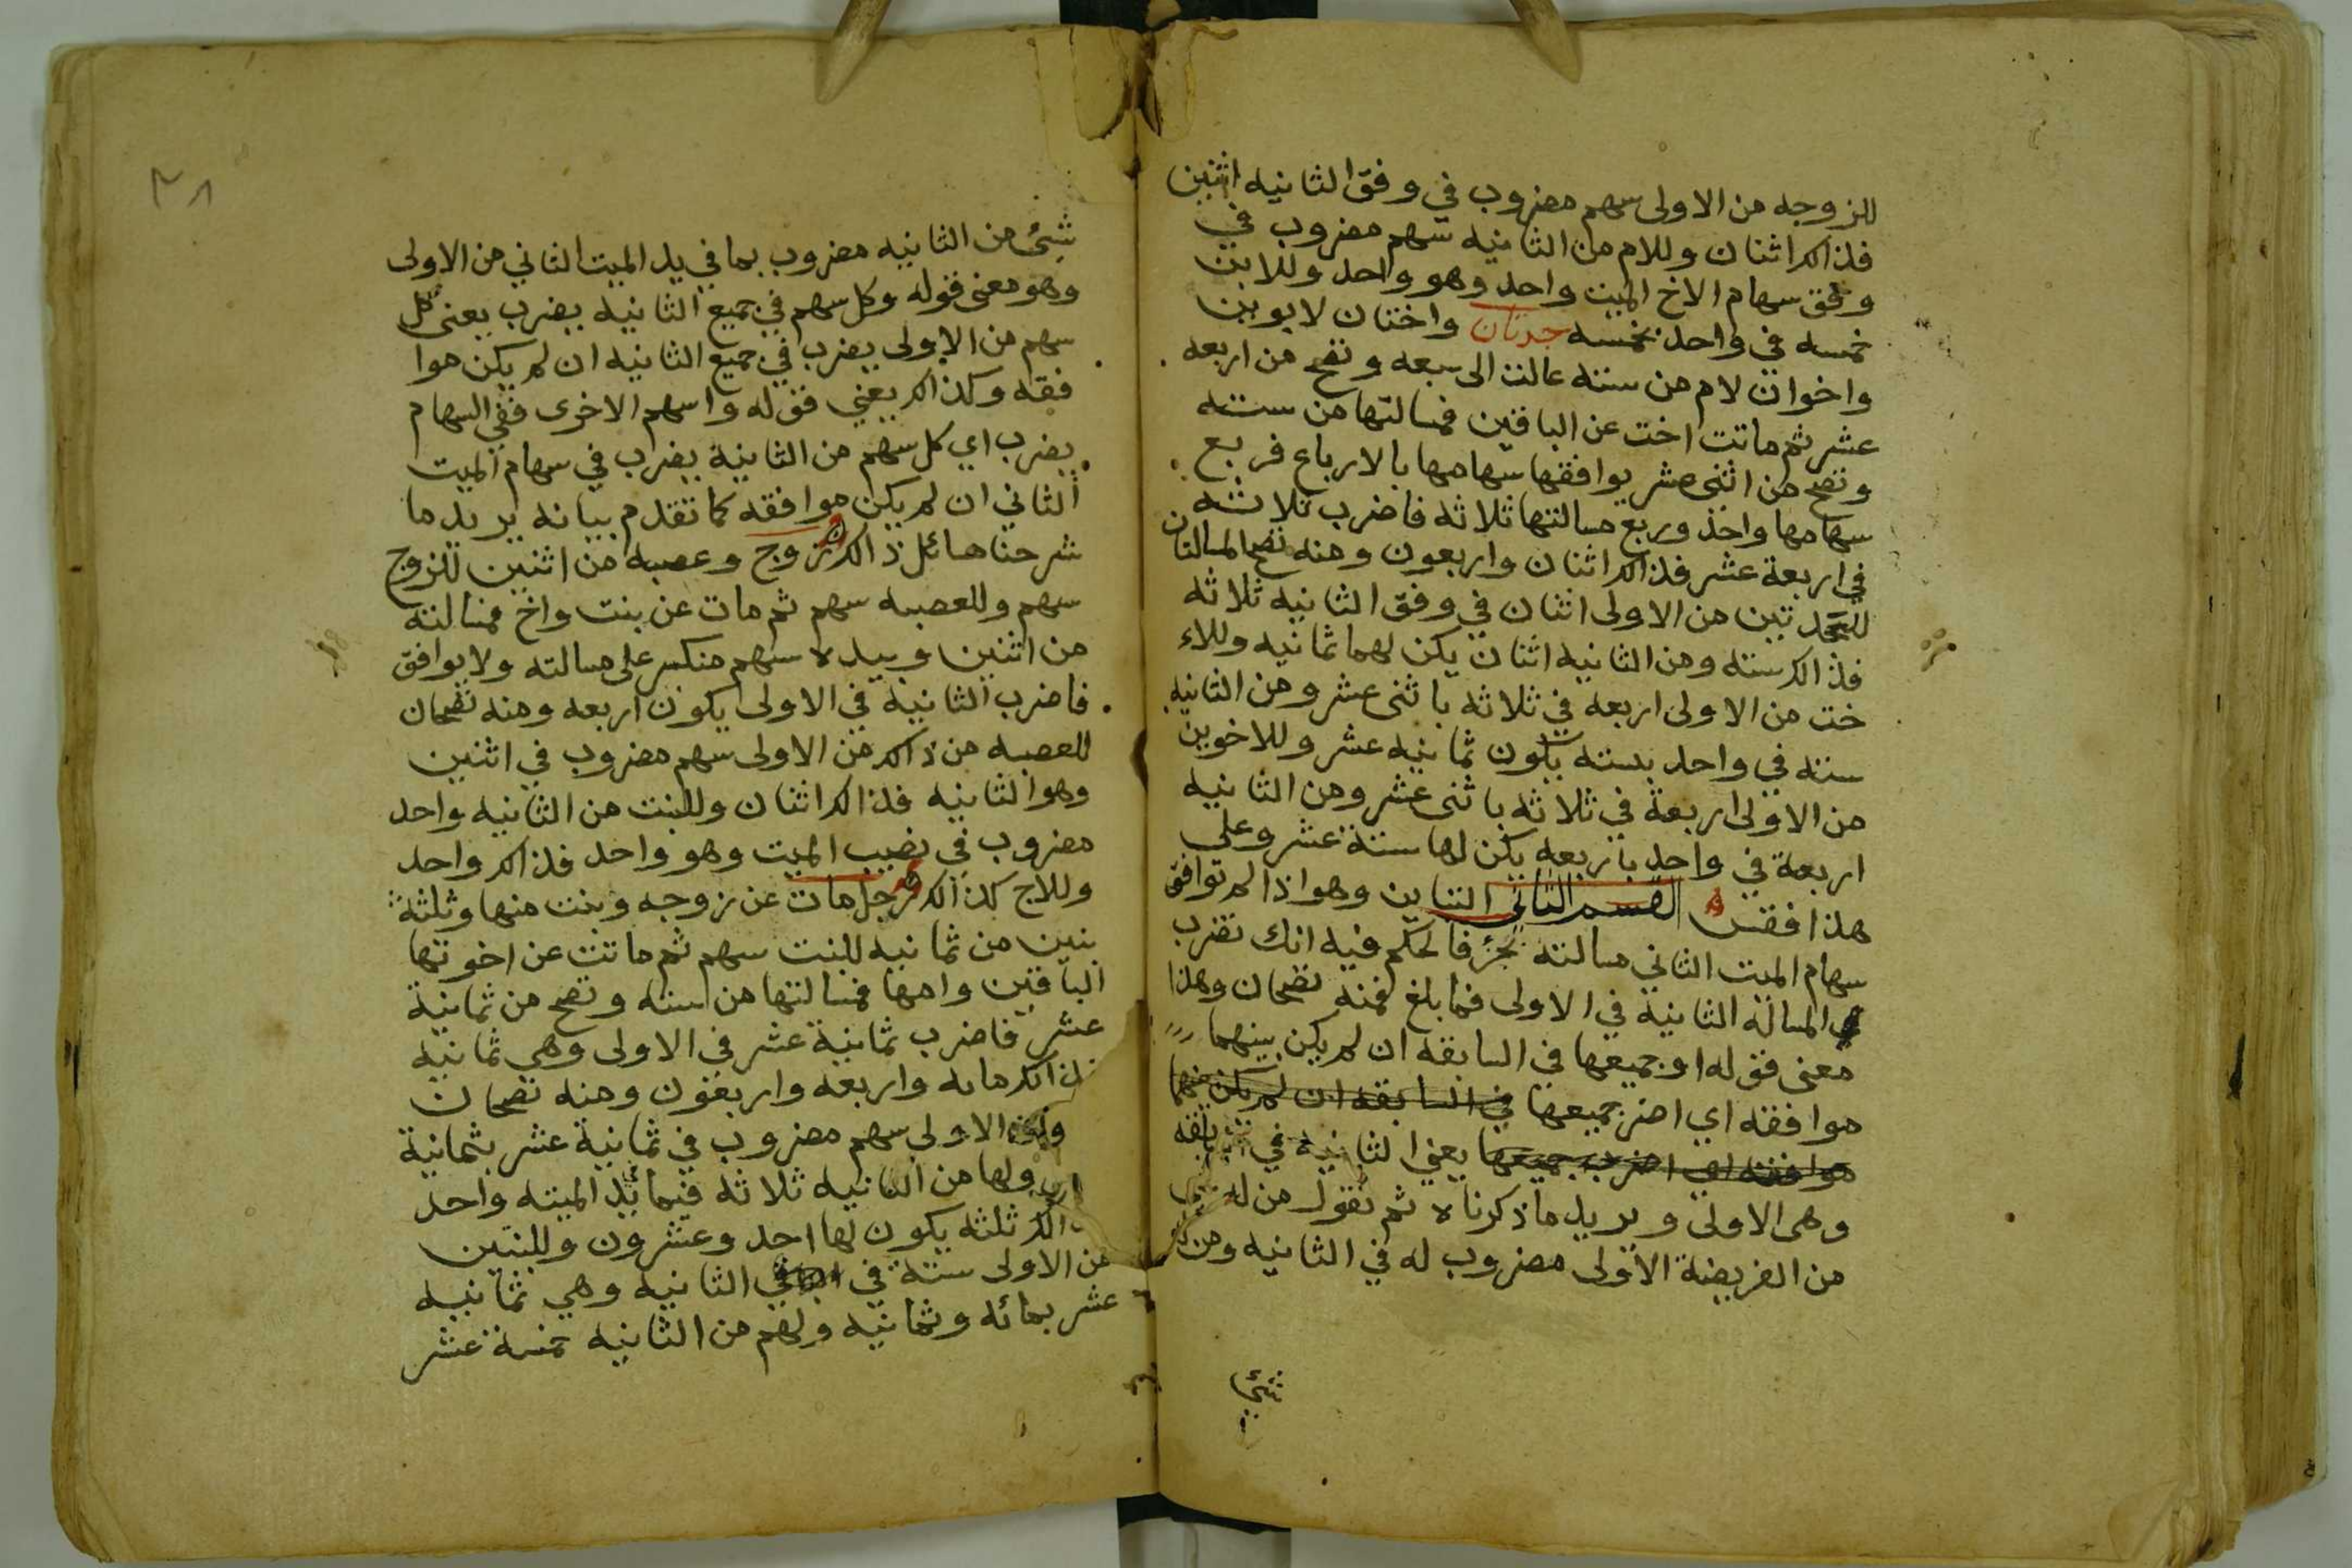 للزوجه من الاولى سهم مضروب في وفق الثانيه اثنين
فذالك اثنان وللام من الثانيه سهم مضروب في
وفق سهام الاخ الميت واحد وهو واحد وللابن
خمسه في واحد بخمسه جدتان واختان لابوين
واخوان لام من سته عالت الى سبعه وتصح من اربعه
عشر ثم ماتت اخت عن الباقين فمسالتها من سته
وتصح من اثنى عشر يوافقها سهامها بالارباع فربع
سهامها واحد وربع مسالتها ثلاثه فاضرب ثلاثه
في اربعة عشر فذالك اثنان واربعون ومنه تصح المسالتان
للجدتين من الاولى اثنان في وفق الثانيه ثلاثه
فذالك سته ومن الثانيه اثنان يكن لهما ثمانيه وللاء
خت من الاولى اربعه في ثلاثه باثنى عشر ومن الثانيه
سته في واحد بسته يكون ثمانيه عشر وللاخوين
من الاولى اربعة في ثلاثه باثنى عشر ومن الثانيه
اربعة في واحد باربعه يكن لها ستة عشر وعلى
هذا فقس القسم الثاني التباين وهو اذا لم توافق
سهام الميت الثاني مسالته بجزء فالحكم فيه انك تضرب
المسالة الثانيه في الاولى فما بلغ فمنه تصحان وهذا
معنى قوله او جميعها في السابقه ان لم يكن بينهما
موافقه اي اضرب جميعها في السابقه ان لم يكن بينهما
موافقه اي اضرب جميعها يعني الثانيه في
وهى الاولى ويريد ما ذكرناه ثم نقول من له
من الفريضة الاولى مضروب له في الثانيه ومن
شيء
٣٨
شيء من الثانيه مضروب بما في يد الميت الثاني من الاولى
وهو معنى قوله وكل سهم في جميع الثانيه يضرب يعنى كل
سهم من الاولى يضرب في جميع الثانيه ان لم يكن موا
فقه وكذالك يعني قوله واسهم الاخرى ففي السهام
يضرب اي كل سهم من الثانية يضرب في سهام الميت
الثاني ان لم يكن موافقه كما تقدم بيانه يريد ما
شرحنا مسائل ذالك زوج وعصبه من اثنين للزوج
سهم وللعصبه سهم ثم مات عن بنت واخ فمسالته
من اثنين وبيده سهم منكسر على مسالته ولا يوافق
فاضرب الثانية في الاولى يكون اربعه ومنه تصحان
للعصبه من ذالك من الاولى سهم مضروب في اثنين
وهو الثانيه فذالك اثنان وللبنت من الثانيه واحد
مضروب في نصيب الميت وهو واحد فذالك واحد
وللاخ كذالك رجل مات عن زوجه وبنت منها وثلثة
بنين من ثمانيه للبنت سهم ثم ماتت عن اخوتها
الباقين وامها فمسالتها من سته وتصح من ثمانية
عشر فاضرب ثمانية عشر في الاولى وهي ثمانيه
فذالك مايه واربعه واربعون ومنه تصحان
الاولى سهم مضروب في ثمانية عشر بثمانية
ولها من الثانيه ثلاثه فيما بيد الميته واحد
ثلثه يكون لها احد وعشرون وللبنين
من الاولى ستة في الثانيه وهي ثمانيه
عشر بمائه وثمانيه ولهم من الثانيه خمسة عشر